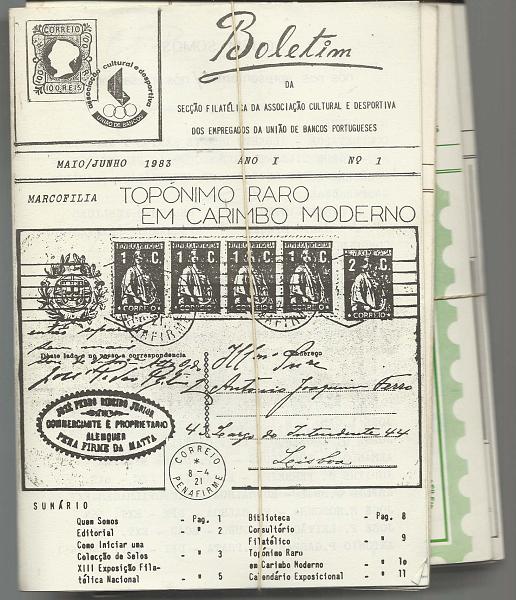 CORREIO
100 REIS
100 REIS
100 REIS
associação cultural e desportiva
UNIÃO DE BANCOS
Boletim
DA
SECÇÃO FILATÉLICA DA ASSOCIAÇÃO CULTURAL E DESPORTIVA
DOS EMPREGADOS DA UNIÃO DE BANCOS PORTUGUESES
MAIO/JUNHO 1983 ANO I Nº 1
MARCOFILIA TOPÓNIMO RARO
EM CARIMBO MODERNO
CORREIO
CORREIO
CORREIO
CORREIO
CORREIO
1 C.
1 C.
1 C.
1 C.
2 C.
PENAFIRME
PENAFIRME
Dêsse lado e no verso a correspondencia
Endereço
Antonio Joaquim Ferro
4 Largo do Intendente 44
Lisboa
JOSÉ PEDRO RIBEIRO JUNIOR
COMMERCIANTE E PROPRIETARIO
ALEMQUER
PENA FIRME DA MATTA
CORREIO
*
8-4
21
PENAFIRME
SUMÁRIO
Quem Somos - Pag. 1
Editorial - " 2
Como Iniciar uma
Colecção de Selos - " 3
XIII Exposição Fila-
télica Nacional - " 5
Biblioteca - Pag. 8
Consultório
Filatélico - " 9
Topónimo Raro
em Carimbo Moderno - " 10
Calendário Exposicional - " 11